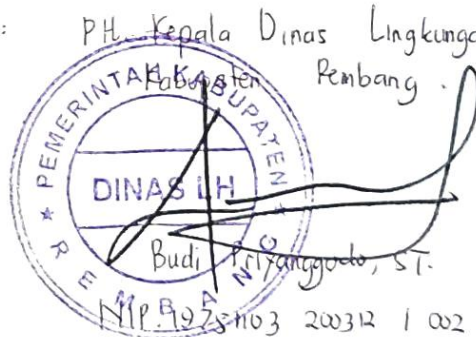 :
PH. Kepala Dinas Lingkunga
Kabupaten Rembang.
PEMERINTAH KABUPATEN
DINAS LH
★ REMBANG ★
Budi Priyanggodo, ST.
NIP. 19751103 200312 1 002